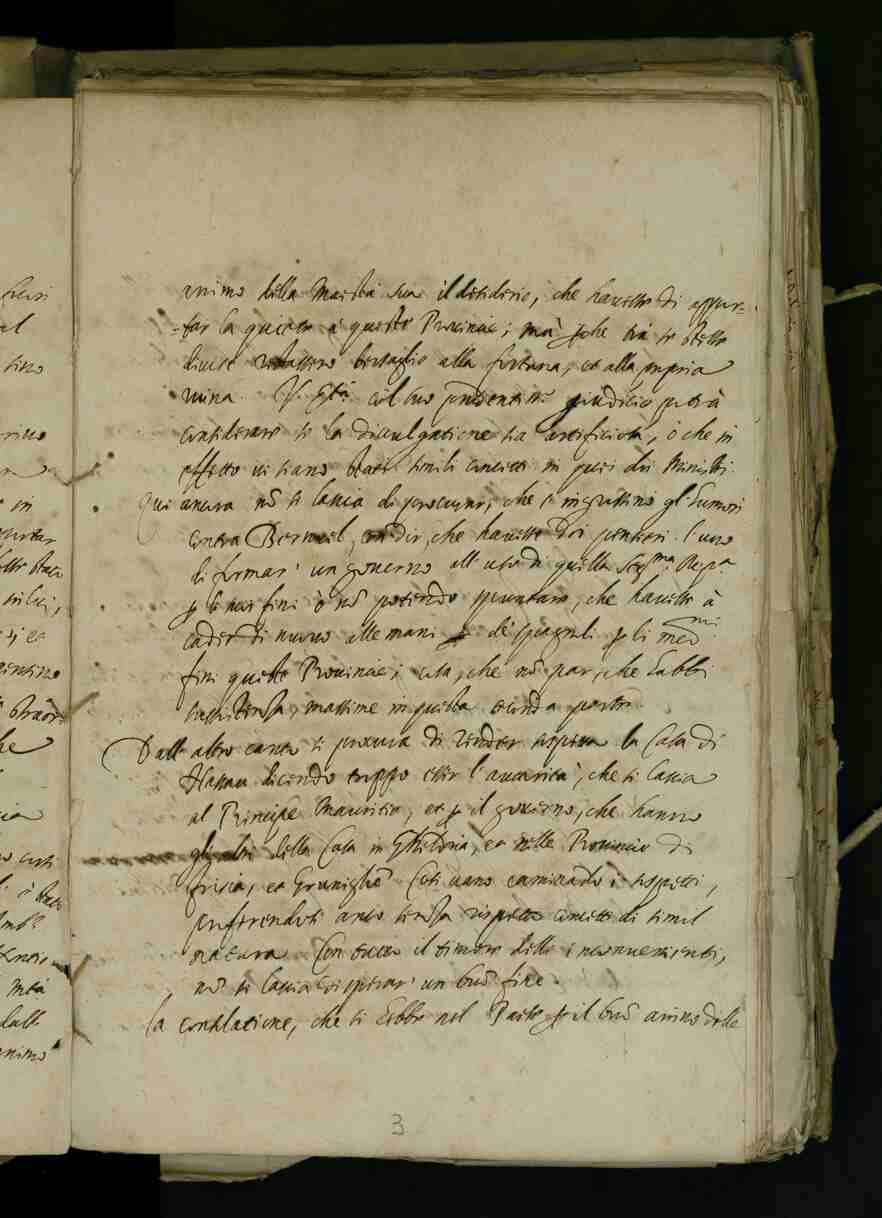 animo della Maestà sua il desiderio, che havesse di appor=
=tar la quiete à queste Provincie; mà che trà se stesse
divise restassero bersaglio alla fortuna, et alla propria
ruina. V. Ser.tà col suo prudentiss.o giudicio potrà
considerare se la divulgatione sia artificiosa, ò che in
effetto vi siano stati simili concetti in quei doi Ministri.
Qui ancora nõ si lascia di procurar, che s'ingrossino gl'humori
contra Barnvel, con dir, che havesse doi pensieri. l'uno
di formar un governo all'uso di quella Ser.ma Rep.ca
p li suoi fini ò nõ potendo spuntare, che havesse à
cader di nuovo alle mani de' Spagnoli p li med.mi
fini queste Provincie; cosa, che nõ par, che habbi
sussistenza, massime in questa seconda parte.
Dall'altro canto si procura di render sospetta la Casa di
Nassau dicendo troppo esser l'auttorità, che si lascia
al Principe Mauritio, et p il governo, che hanno
gli altri della Casa in Gheldria, et nelle Provincie di
Frisia, et Gruninghẽ. Così vano caminando i sospetti,
proferendosi anco senza rispetto concetti di simil
natura. Con tutto il timore delli inconvenienti,
nõ si lascia di sperar un buõ fine.
La consolatione, che si hebbe nel p il buõ animo delle
3